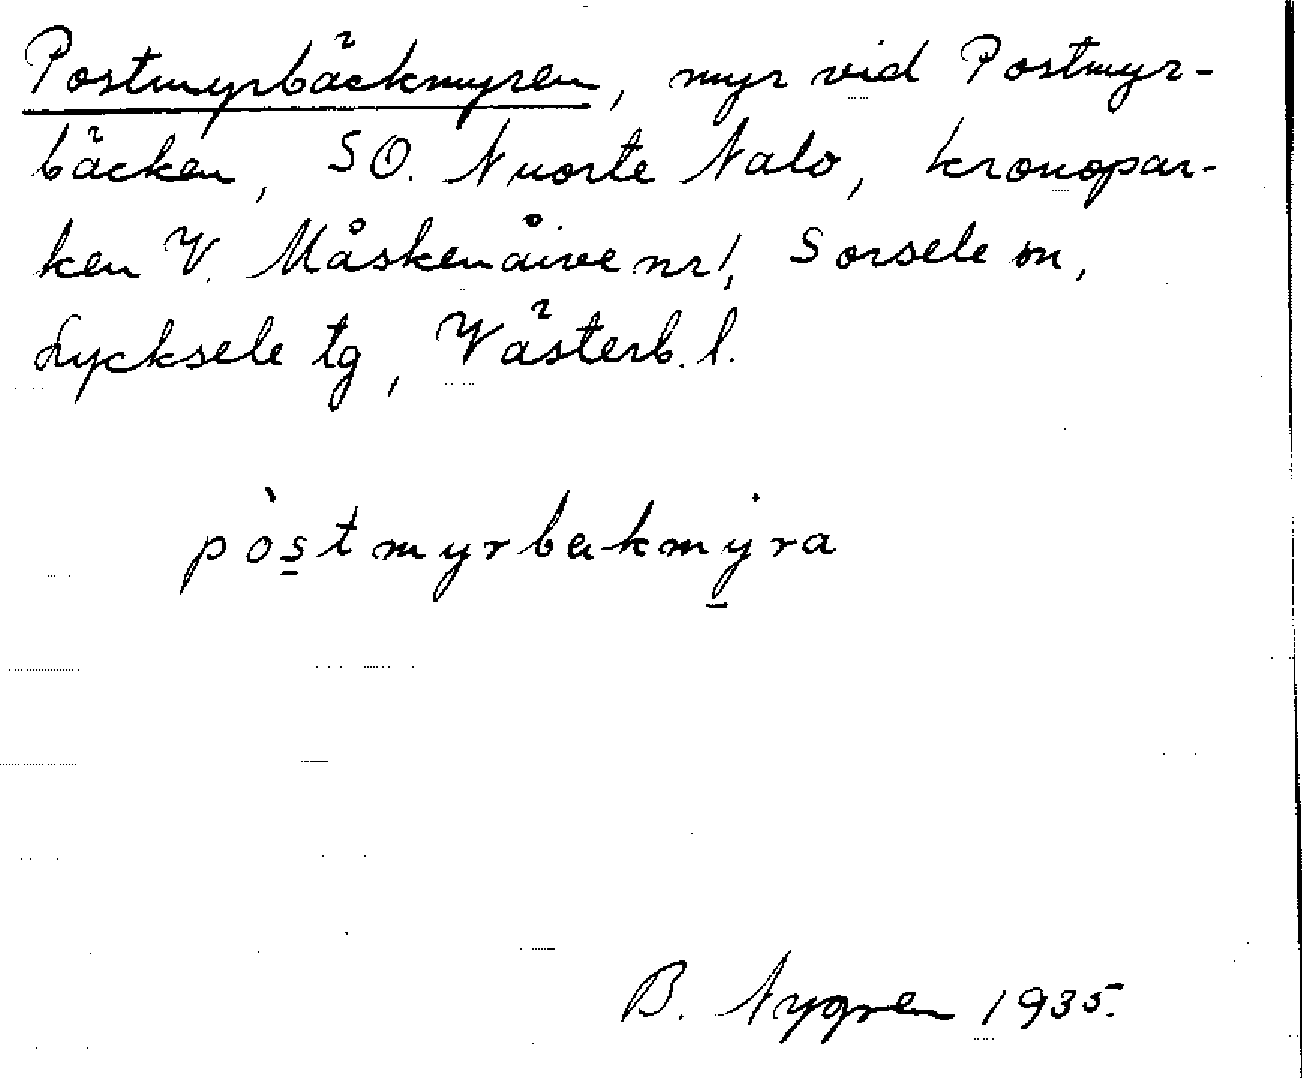 Postmyrbäckmyren, myr vid Postmyr-
bäcken, SO. Nuorte Nalo, kronopar-
ken V. Måskenåive nr 1, Sorsele sn,
Lycksele tg, Västerb. l.
pòs̲tmyrbekmẏ̲ra
B. Nygren 1935.